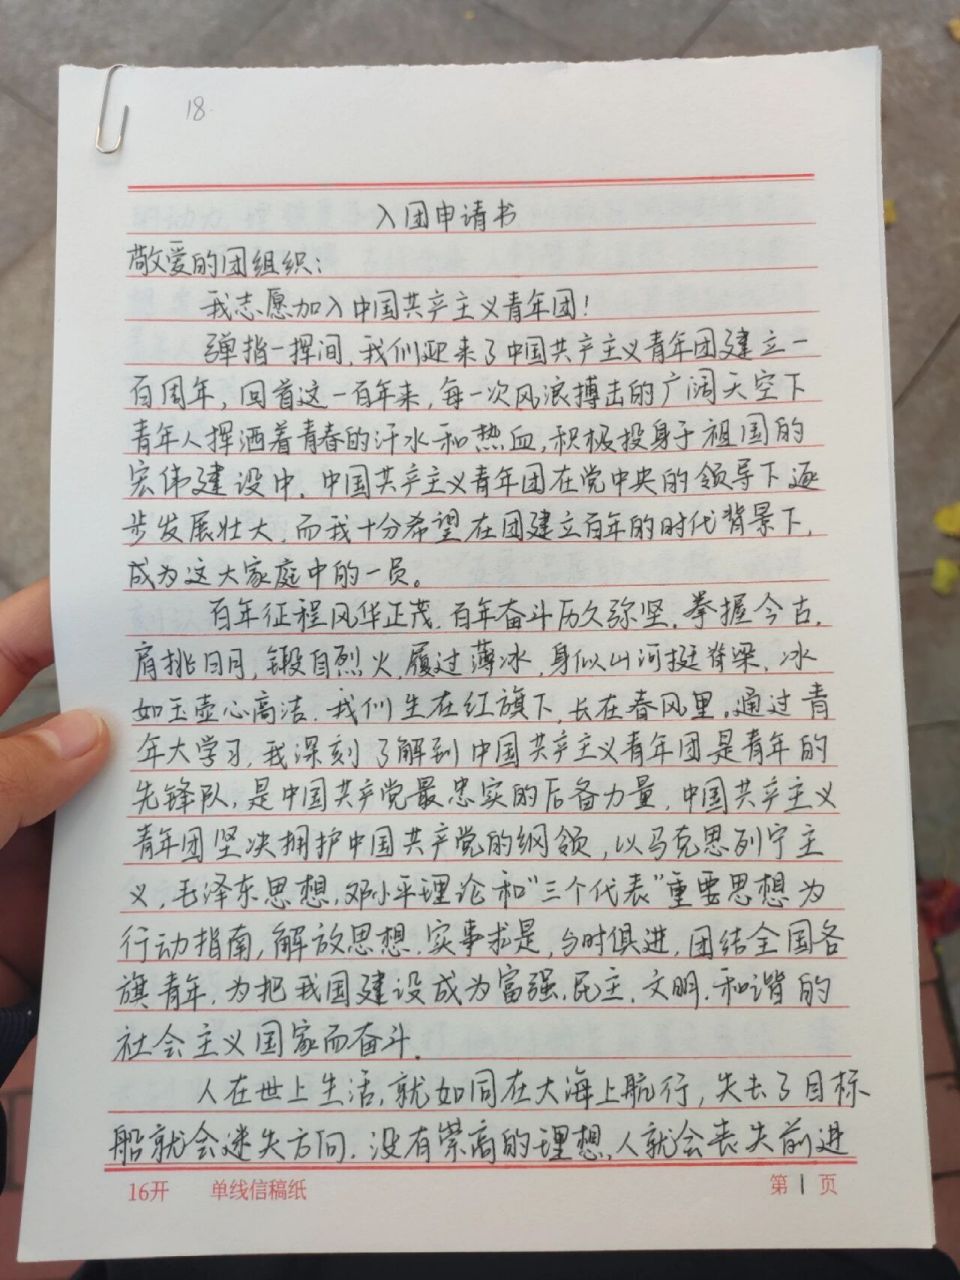 18.
入团申请书
敬爱的团组织：
我志愿加入中国共产主义青年团！
弹指一挥间，我们迎来了中国共产主义青年团建立一
百周年，回首这一百年来，每一次风浪搏击的广阔天空下
青年人挥洒着青春的汗水和热血，积极投身于祖国的
宏伟建设中，中国共产主义青年团在党中央的领导下逐
步发展壮大，而我十分希望在团建立百年的时代背景下，
成为这大家庭中的一员。
百年征程风华正茂，百年奋斗历久弥坚，拳握今古，
肩挑日月，锻自烈火，履过薄冰，身似山河挺脊梁，冰
如玉壶心高洁，我们生在红旗下，长在春风里。通过青
年大学习，我深刻了解到中国共产主义青年团是青年的
先锋队，是中国共产党最忠实的后备力量，中国共产主义
青年团坚决拥护中国共产党的纲领，以马克思列宁主
义，毛泽东思想，邓小平理论和“三个代表”重要思想为
行动指南，解放思想，实事求是，与时俱进，团结全国各
旗青年，为把我国建设成为富强，民主，文明，和谐的
社会主义国家而奋斗．
人在世上生活，就如同在大海上航行，失去了目标
船就会迷失方向，没有崇高的理想，人就会丧失前进
16开 单线信稿纸 第1页